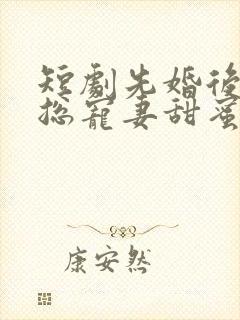 短劇先婚後
總寵妻甜蜜
康安然